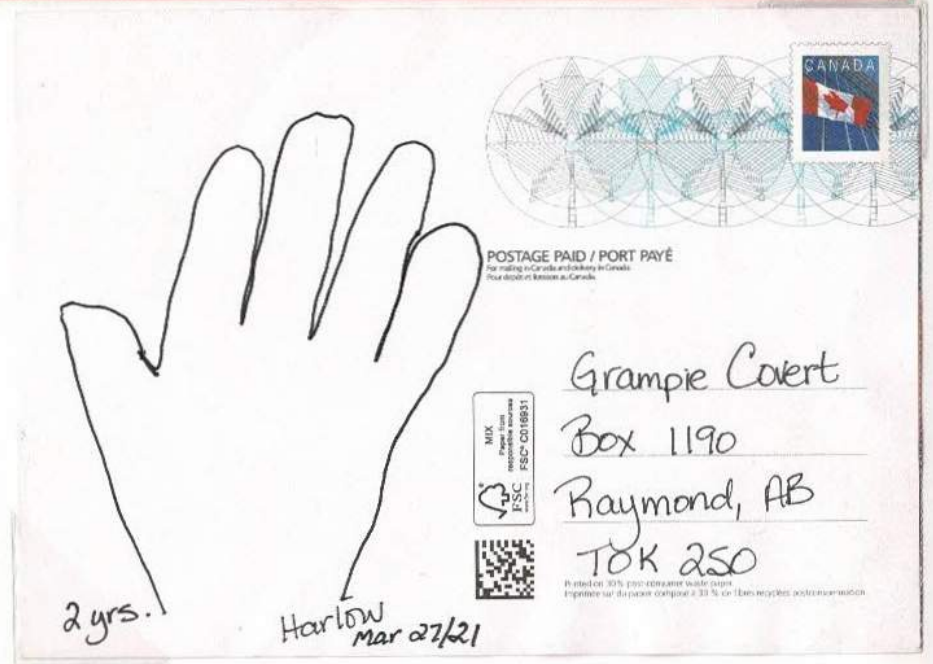 CANADA
POSTAGE PAID / PORT PAYÉ
For mailing in Canada and delivery in Canada.
Pour dépôt et livraison au Canada.
Grampie Covert
Box 1190
Raymond, AB
TOK 2S0
MIX
Paper from
responsible sources
FSC® C016931
FSC
Printed on 30% post-consumer waste paper
Imprimée sur du papier composé à 30 % de fibres recyclées postconsommation
2 yrs.
Harlow
Mar 27/21